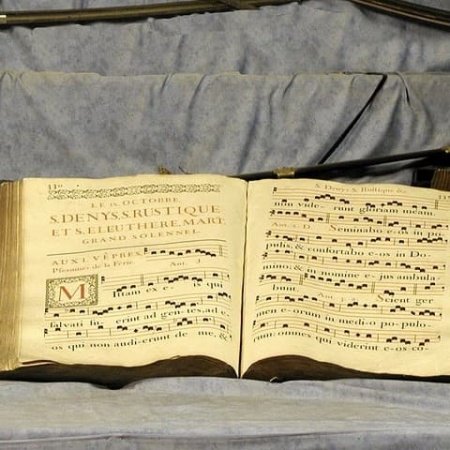 110
LE IX. OCTOBRE.
S. DENYS, S. RUSTIQUE
ET S. ELEUTHERE, MART.
GRAND SOLENNEL.
AUX I. VÊPRES.
Pseaumes de la Ferie. Ant.
Mittam ex e- is qui
salvati fu- erint ad gen-tes, ad e-
os qui non audi-erunt de me; &
S. Denys, S. Rustique &c.
non vide- runt gloriam meam.
Ant. 2. D Seminabo e-os in po-
pulis, & confortabo e-os in Do-
mino; & in nomine e-jus ambula
bunt. Ant. Scient ger
men e-orum in medi-o populo-
rum: omnes qui viderint e-os co-